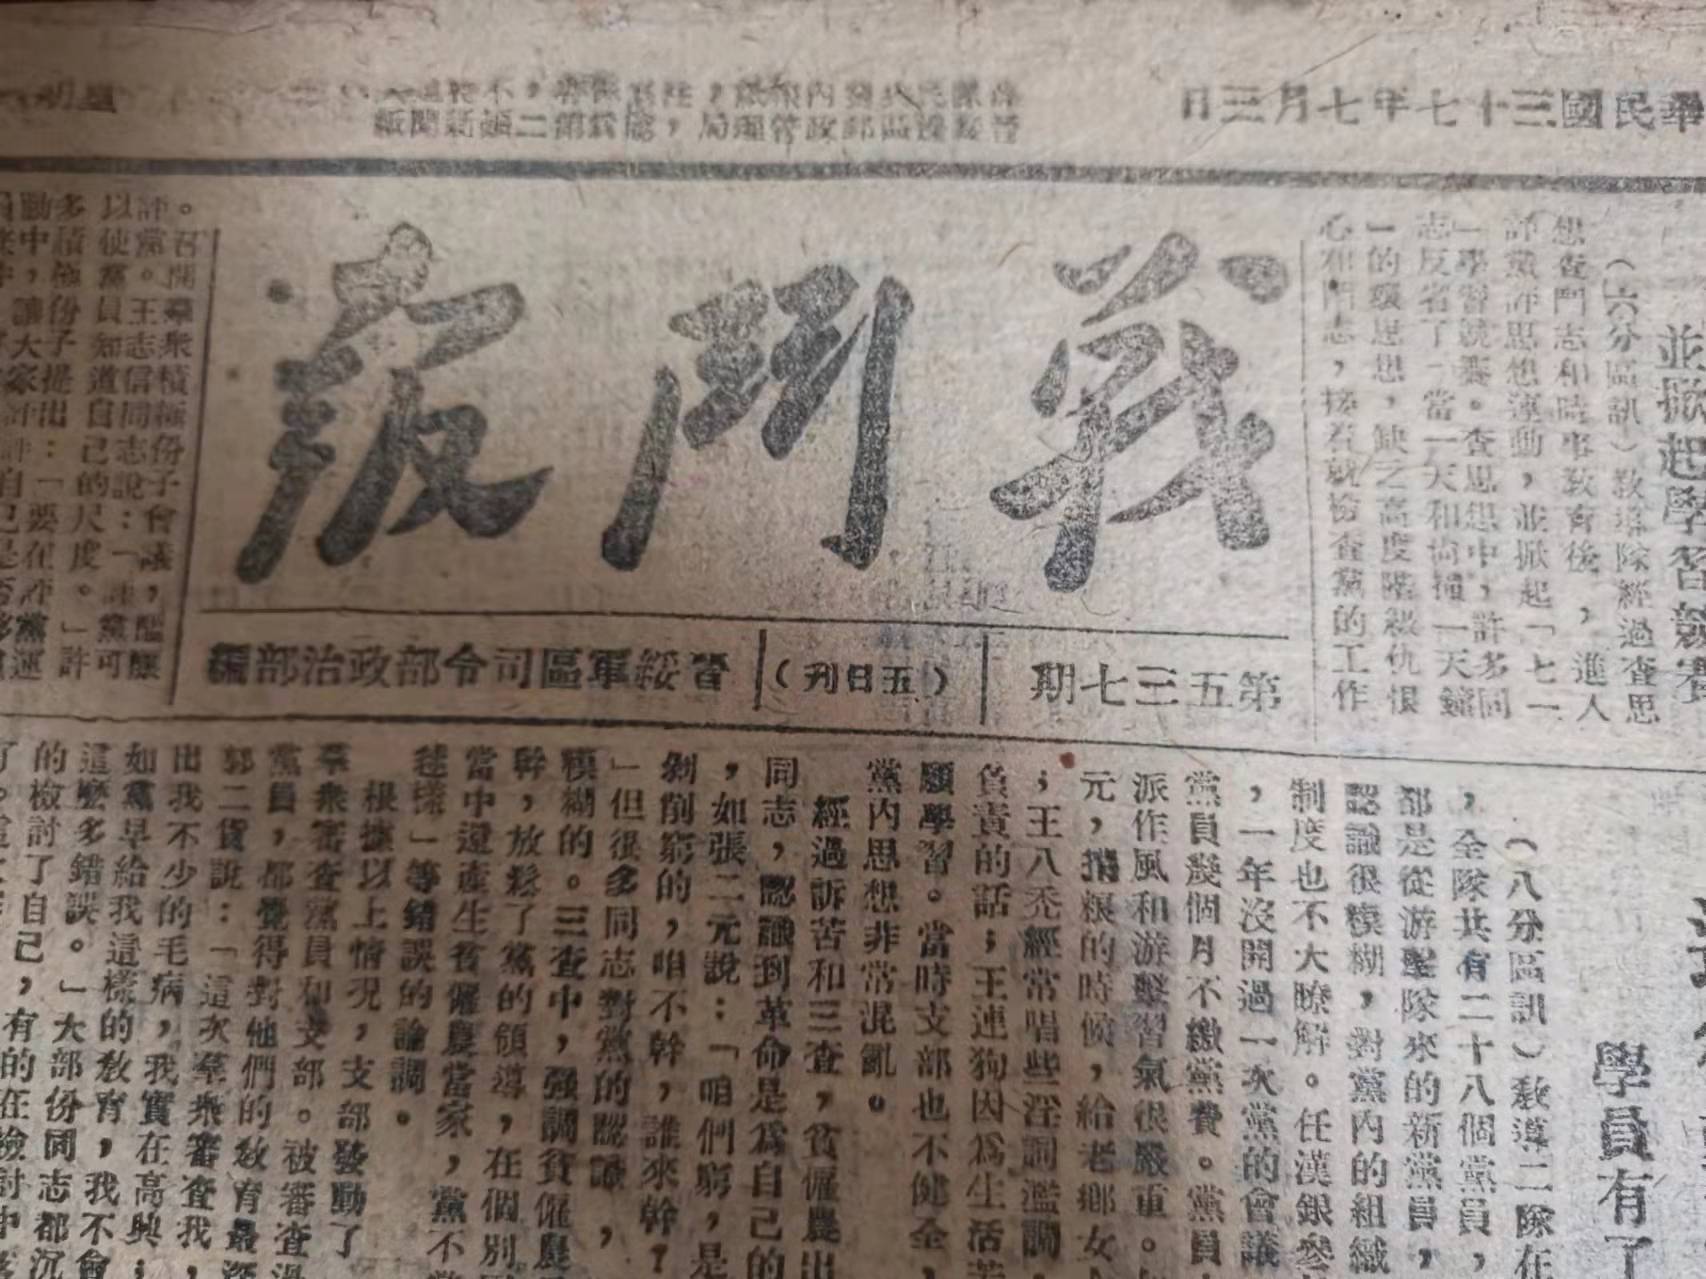 華民國三十七年七月三日
晉綏邊區郵政管理局，認爲第二類新聞紙
戰鬥報
第五三七期
（五日刊）
晉綏軍區司令部政治部編
並掀起學習競賽
（六分區訊）教導隊經過查思
想查鬥志和時事教育後，進人
評黨評思想運動，並掀起「七一
」學習競賽。查思想中，許多同
志反省了「當一天和尚撞一天鐘
」的壞思想，缺乏高度階級仇恨
心和鬥志，接着就檢查黨的工作
。召開羣衆積極份子會議，醞釀
評黨。王志信同志說：「評黨可
以使黨員知道自己的尺度。」許
多積極份子提出：「要在評黨運
動中，讓大家評評自己是否够
學員有了
（八分區訊）教導二隊在
，全隊共有二十八個黨員，
都是從游擊隊來的新黨員，
認識很模糊，對黨內的組織
制度也不大瞭解。任漢銀參
，一年沒開過一次黨的會議
黨員幾個月不繳黨費。黨員
派作風和游擊習氣很嚴重。
元，揹粮的時候，給老鄉女
；王八禿經常唱些淫詞濫調
負責的話；王連狗因爲生活苦
願學習。當時支部也不健全，
黨內思想非常混亂。
經過訴苦和三查，貧僱農出
同志，認識到革命是爲自己的
，如張二元說：「咱們窮，是
剝削窮的，咱不幹，誰來幹？
」但很多同志對黨的認識，
模糊的。三查中，强調貧僱農
幹，放鬆了黨的領導，在個別
當中還產生着僱農當家，黨不
怎樣」等錯誤的論調。
根據以上情况，支部發動了
羣衆審查黨員和支部。被審查
黨員，都覺得對他們的教育最深
郭二貨說：「這次羣衆審查我，
出我不少的毛病，我實在高興；
如黨早給我這樣的教育，我不會
這麽多錯誤。」大部份同志都沉
的檢討了自己，有的在檢討中